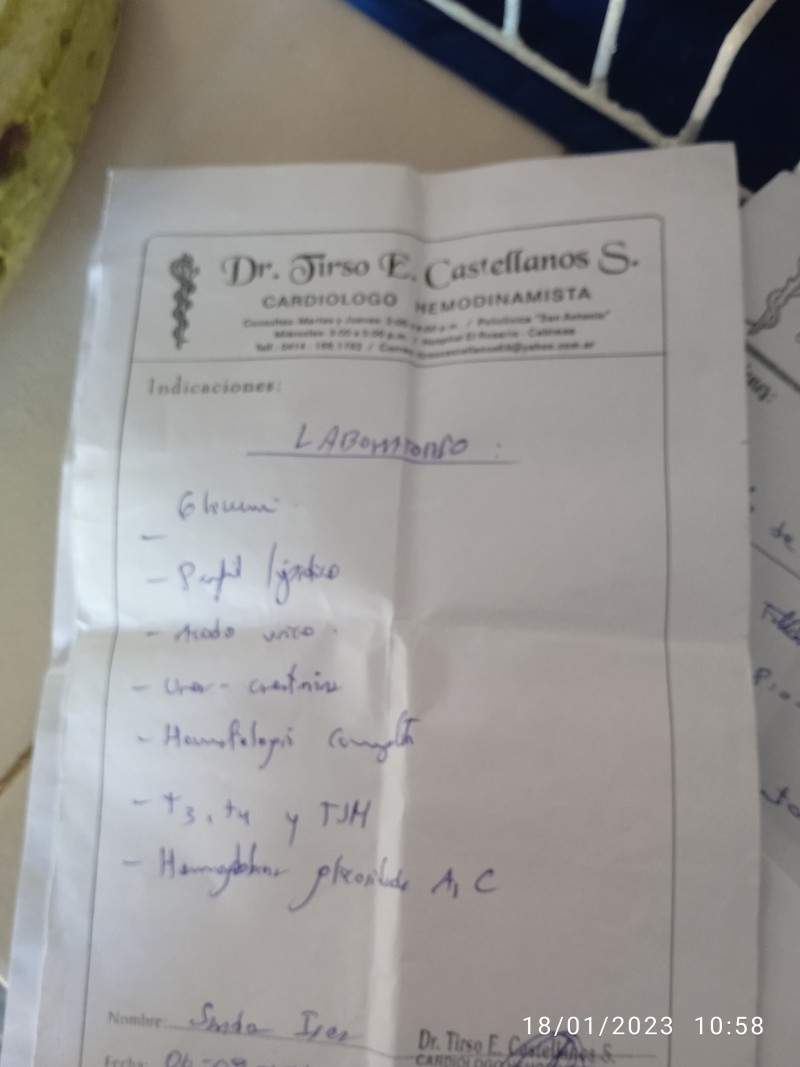 Dr. Tirso E. Castellanos S.
CARDIOLOGO HEMODINAMISTA
Consultas: Martes y Jueves: 3:00 p.m. / Policlínica "San Antonio"
Miércoles: 3:00 a 5:00 p.m. / Hospital El Rosario - Cabimas
Indicaciones:
LABORATORIO :
Glicemia
- Perfil lipidico
- Acido urico
- Urea - creatinina
- Hematologia completa
- T3, t4 y TSH
- Hemoglobina glicosilada A1C
de
Nombre:
Dr. Tirso E. Castellanos S.
Fecha: 06-09
CARDIOLOGO
18/01/2023 10:58